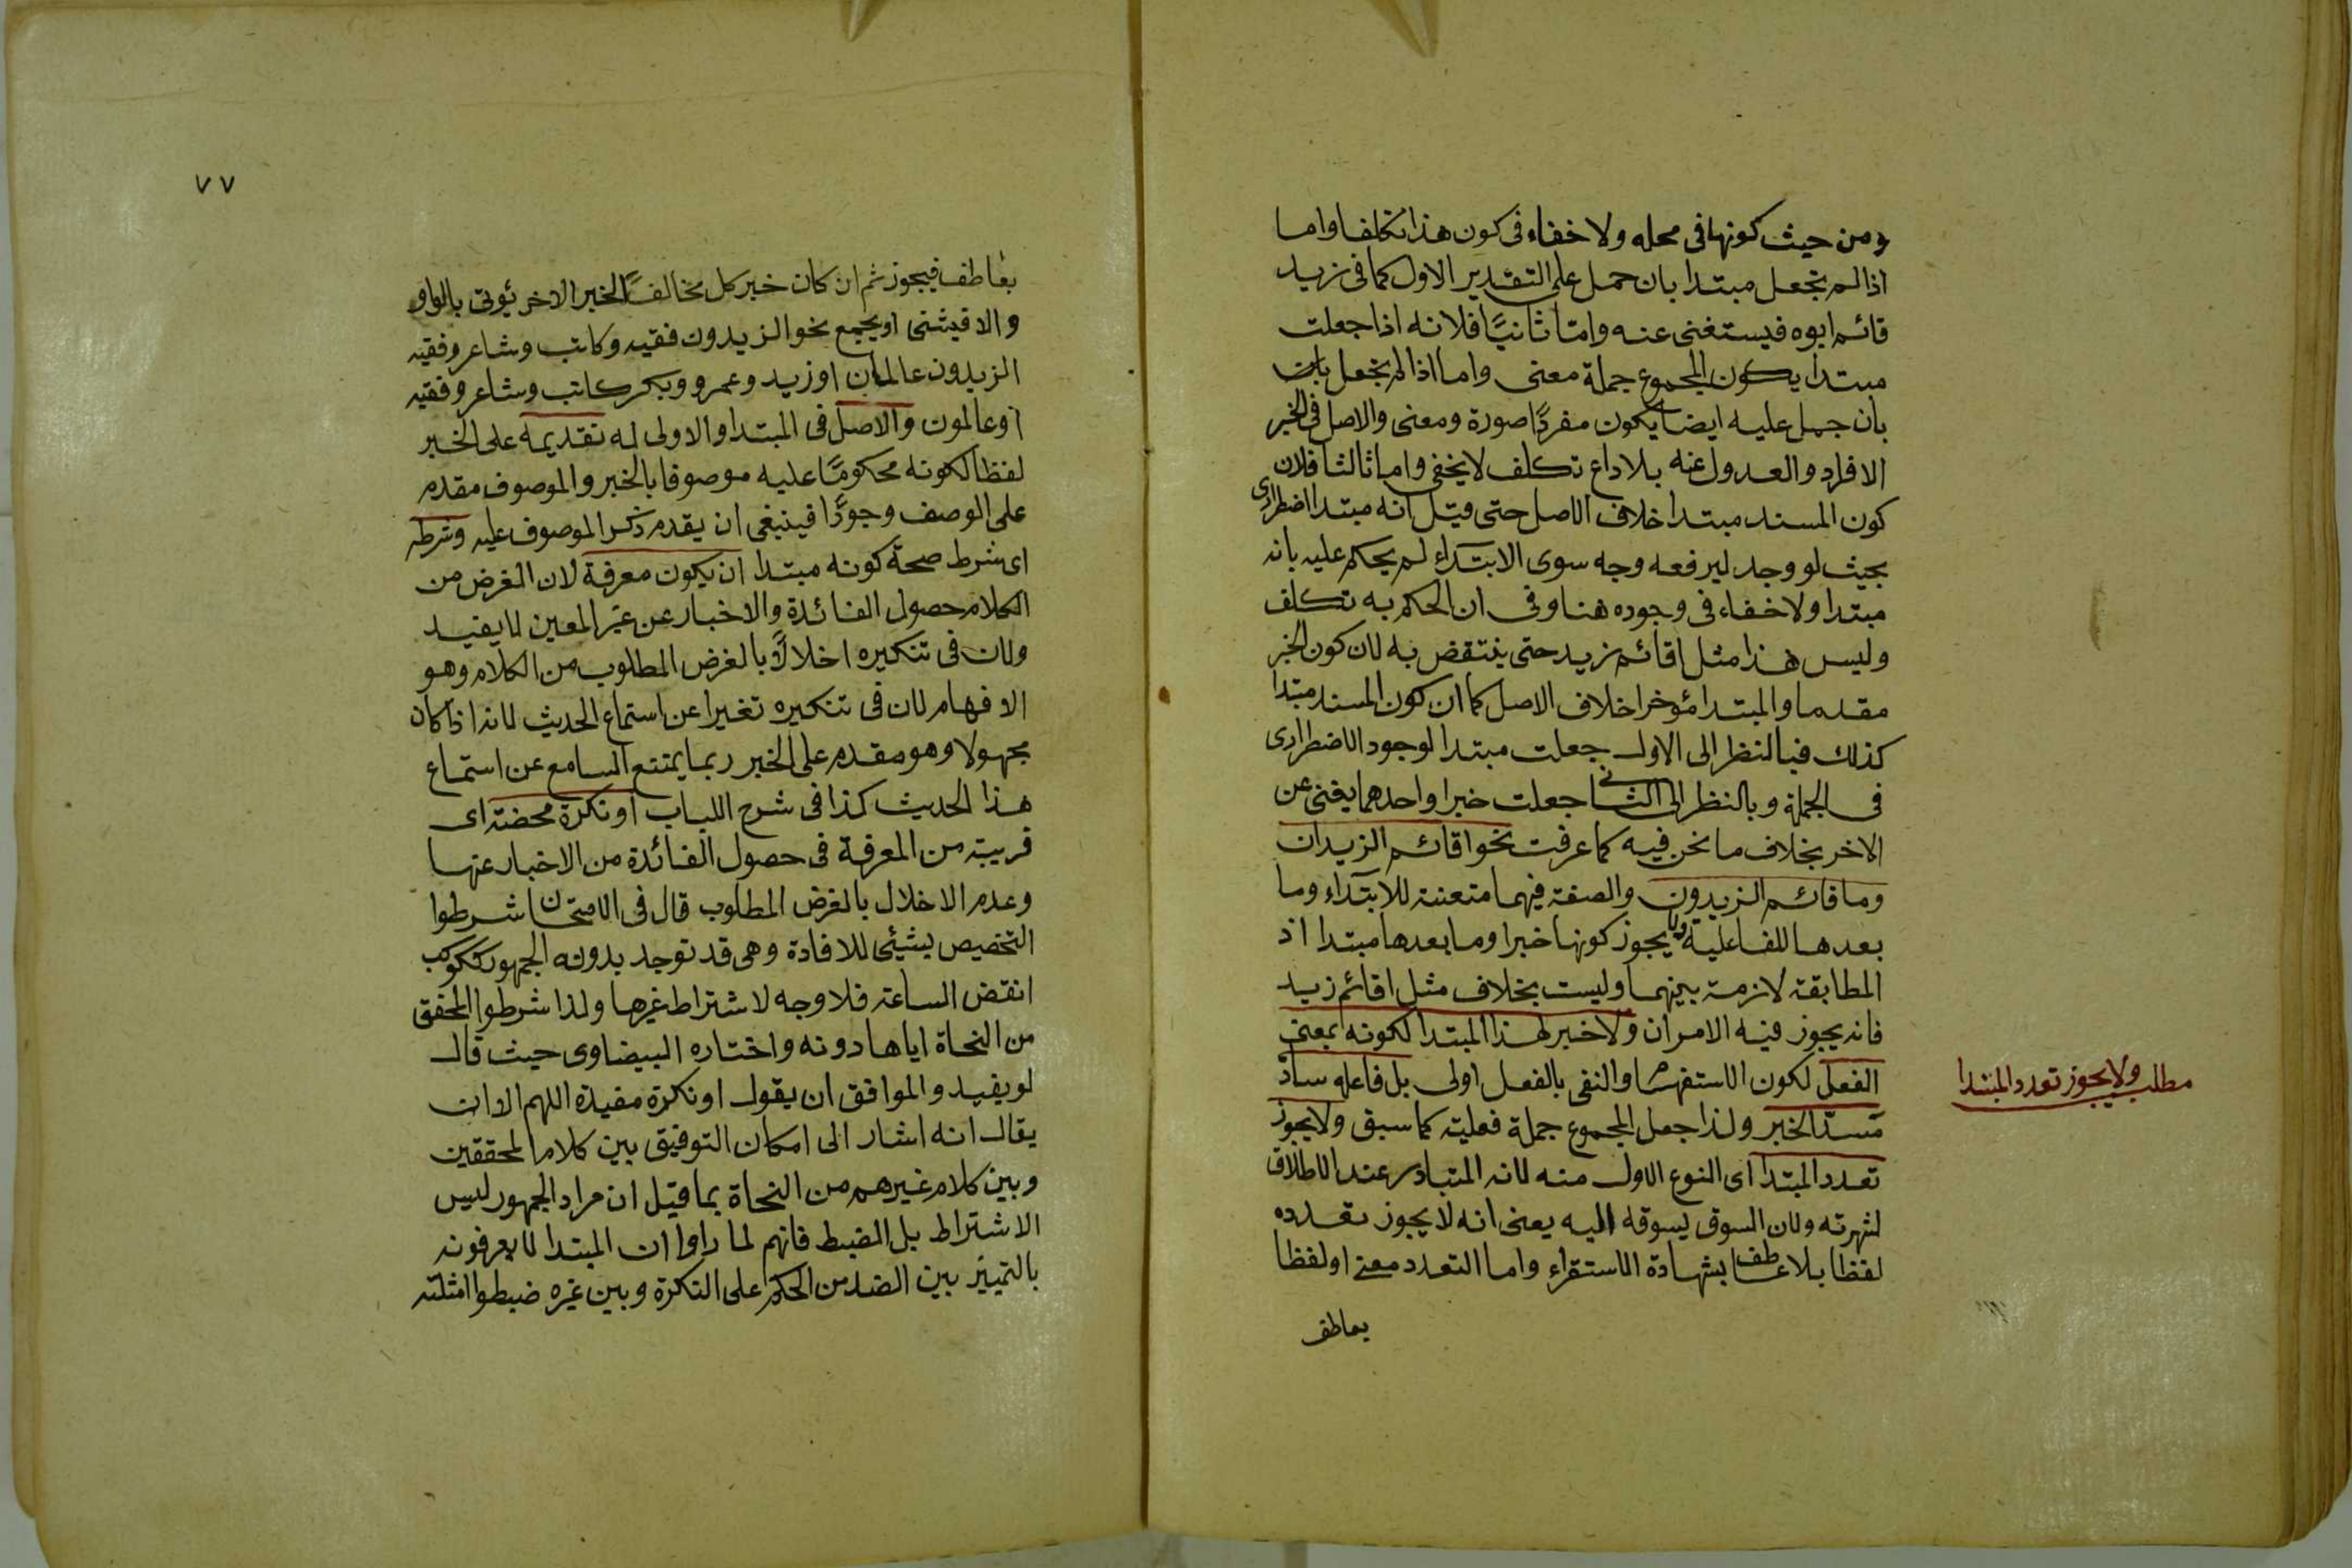 ومن حيث كونها فى محله ولا خفاء فى كون هذا تكلفا واما
اذا لم تجعل مبتدا بان حمل على التقدير الاول كما فى زيد
قائم ابوه فيستغنى عنه وامّا ثانيًا فلانه اذا جعلت
مبتدا يكون المجموع جملة معنى واما اذا لم تجعل بان
بان حمل عليه ايضا يكون مفردًا صورة ومعنى والاصل فى الخبر
الافراد والعدول عنه بلا داع تكلف لا يخفى واما ثالثا فلان
كون المسند مبتدا خلاف الاصل حتى قيل انه مبتدا اضطرارى
بحيث لو وجد ليرفعه وجه سوى الابتداء لم يحكم عليه بانه
مبتدا ولا خفاء فى وجوده هنا وفى ان الحكم به تكلف
وليس هذا مثل اقائم زيد حتى ينتقض به لان كون الخبر
مقدما والمبتدا مؤخرا خلاف الاصل كما ان كون المسند مبتدا
كذلك فبالنظر الى الاول جعلت مبتدا لوجود الاضطرارى
فى الجملة وبالنظر الى الثانى جعلت خبرا واحدهما يغنى عن
الاخر بخلاف ما نحن فيه كما عرفت نحو اقائم الزيدان
وما قائم الزيدون والصفة فيهما متعينة للابتداء وما
بعدها للفاعلية ولا يجوز كونها خبرا وما بعدها مبتدا اذ
المطابقة لازمة بينهما وليست بخلاف مثل اقائم زيد
فانه يجوز فيه الامران ولا خبر لهذا المبتدا لكونه بمعنى
الفعل لكون الاستفهام والنفى بالفعل اولى بل فاعله سادّ
مسدّ الخبر ولذا جعل المجموع جملة فعلية كما سبق ولا يجوز
تعدد المبتدا اى النوع الاول منه لانه المتبادر عند الاطلاق
لشهرته ولان السوق يسوقه اليه يعنى انه لا يجوز تعدده
لفظا بلا عاطف بشهادة الاستقراء واما التعدد معنى او لفظا
بعاطف
مطلب ولا يجوز تعدد المبتدا
٧٧
بعاطف فيجوز ثم ان كان خبر كل مخالفًا لخبر الاخر يؤتى بالواو
والا فيثنى او يجمع نحو الزيدون فقيه وكاتب وشاعر وفقيه
الزيدون عالمان او زيد وعمرو وبكر كاتب وشاعر وفقيه
او عالمون والاصل فى المبتدا والاولى له تقديمه على الخبر
لفظا لكونه محكومًا عليه موصوفا بالخبر والموصوف مقدم
على الوصف وجودًا فينبغى ان يقدم ذكر الموصوف عليه وشرطه
اى شرط صحة كونه مبتدا ان يكون معرفة لان الغرض من
الكلام حصول الفائدة والاخبار عن غير المعين لا يفيد
ولان فى تنكيره اخلالًا بالغرض المطلوب من الكلام وهو
الافهام لان فى تنكيره تغيرا عن استماع الحديث لانه اذا كان
مجهولا وهو مقدم على الخبر ربما يمتنع السامع عن استماع
هذا الحديث كذا فى شرح اللباب او نكرة محضته اى
قريبة من المعرفة فى حصول الفائدة من الاخبار عنها
وعدم الاخلال بالغرض المطلوب قال فى الامتحان شرطوا
التخصيص بشيئ للافادة وهى قد توجد بدونه الجمهور ككوكب
انقض الساعة فلا وجه لاشتراط غيرها ولذا شرطوا المحقق
من النحاة اياها دونه واختاره البيضاوى حيث قال
لو يفيد والموافق ان يقول او نكرة مفيدة اللهم الا ان
يقال انه اشار الى امكان التوفيق بين كلام المحققين
وبين كلام غيرهم من النحاة بما قيل ان مراد الجمهور ليس
الاشتراط بل الضبط فانهم لما راوا ان المبتدا لا يعرفونه
بالتمييز بين الضد من الحكم على النكرة وبين غيره ضبطوا امثلته